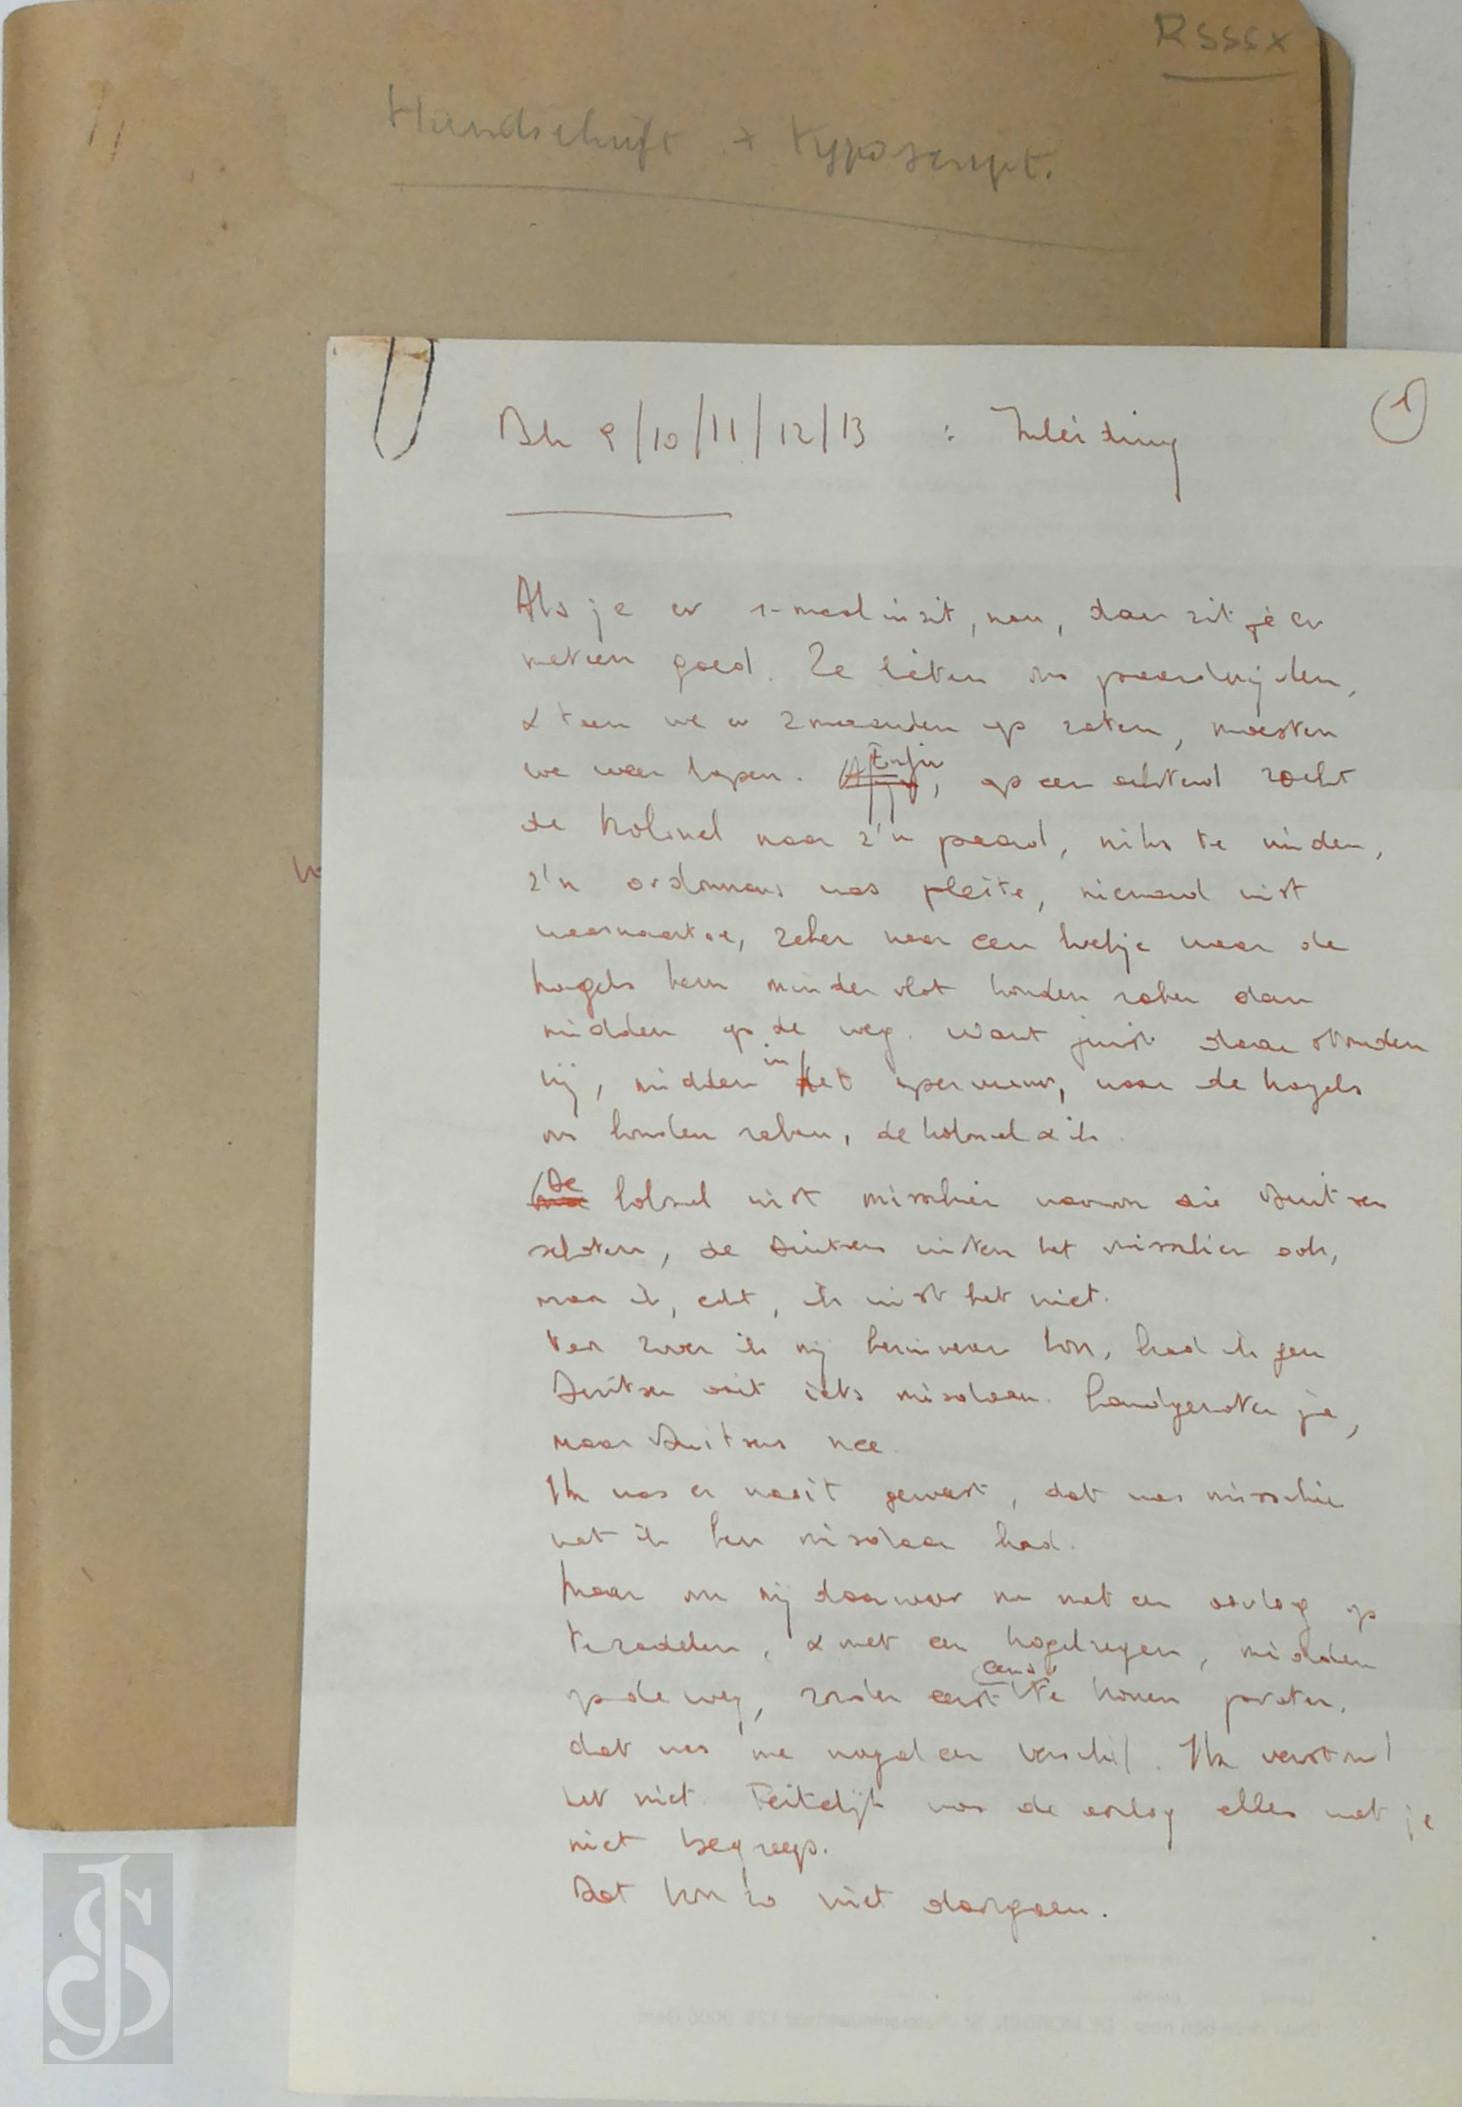 RSSSX
Handschrift + typoscript.
1
Blz 9/10/11/12/13 : Inleiding
Als je er 1-maal in zit, nou, dan zit je er
meteen goed. Ze lieten ons paardrijden,
& toen we er 2 maanden op zaten, moesten
we weer lopen. Enfin, op een ochtend zocht
de kolonel naar z'n paard, niks te vinden,
z'n ordonnans was pleite, niemand wist
waarnaartoe, zeker naar een hoekje waar de
kogels hem minder vlot konden raken dan
midden op de weg. Want juist daar stonden
wij, midden in het, waar de kogels
ons konden raken, de kolonel & ik.
De kolonel wist misschien waarom die Duitsers
schoten, de Duitsers wisten het misschien ook,
maar ik, echt, ik wist het niet.
Ver zover ik mij herinneren kon, had ik geen
Duitser ooit iets misdaan. Landgenoten ja,
maar Duitsers nee.
Ik was er nooit geweest, dat was misschien
wat ik hen misdaan had.
Maar om mij daarvoor nu met een oorlog op
te zadelen, & met een kogelregen, midden
op de weg, zonder eerst eens te komen praten,
dat was me nogal een verschil. Ik verstond
het niet. Feitelijk was de oorlog alles wat je
niet begreep.
Dat kon zo niet doorgaan.
JS